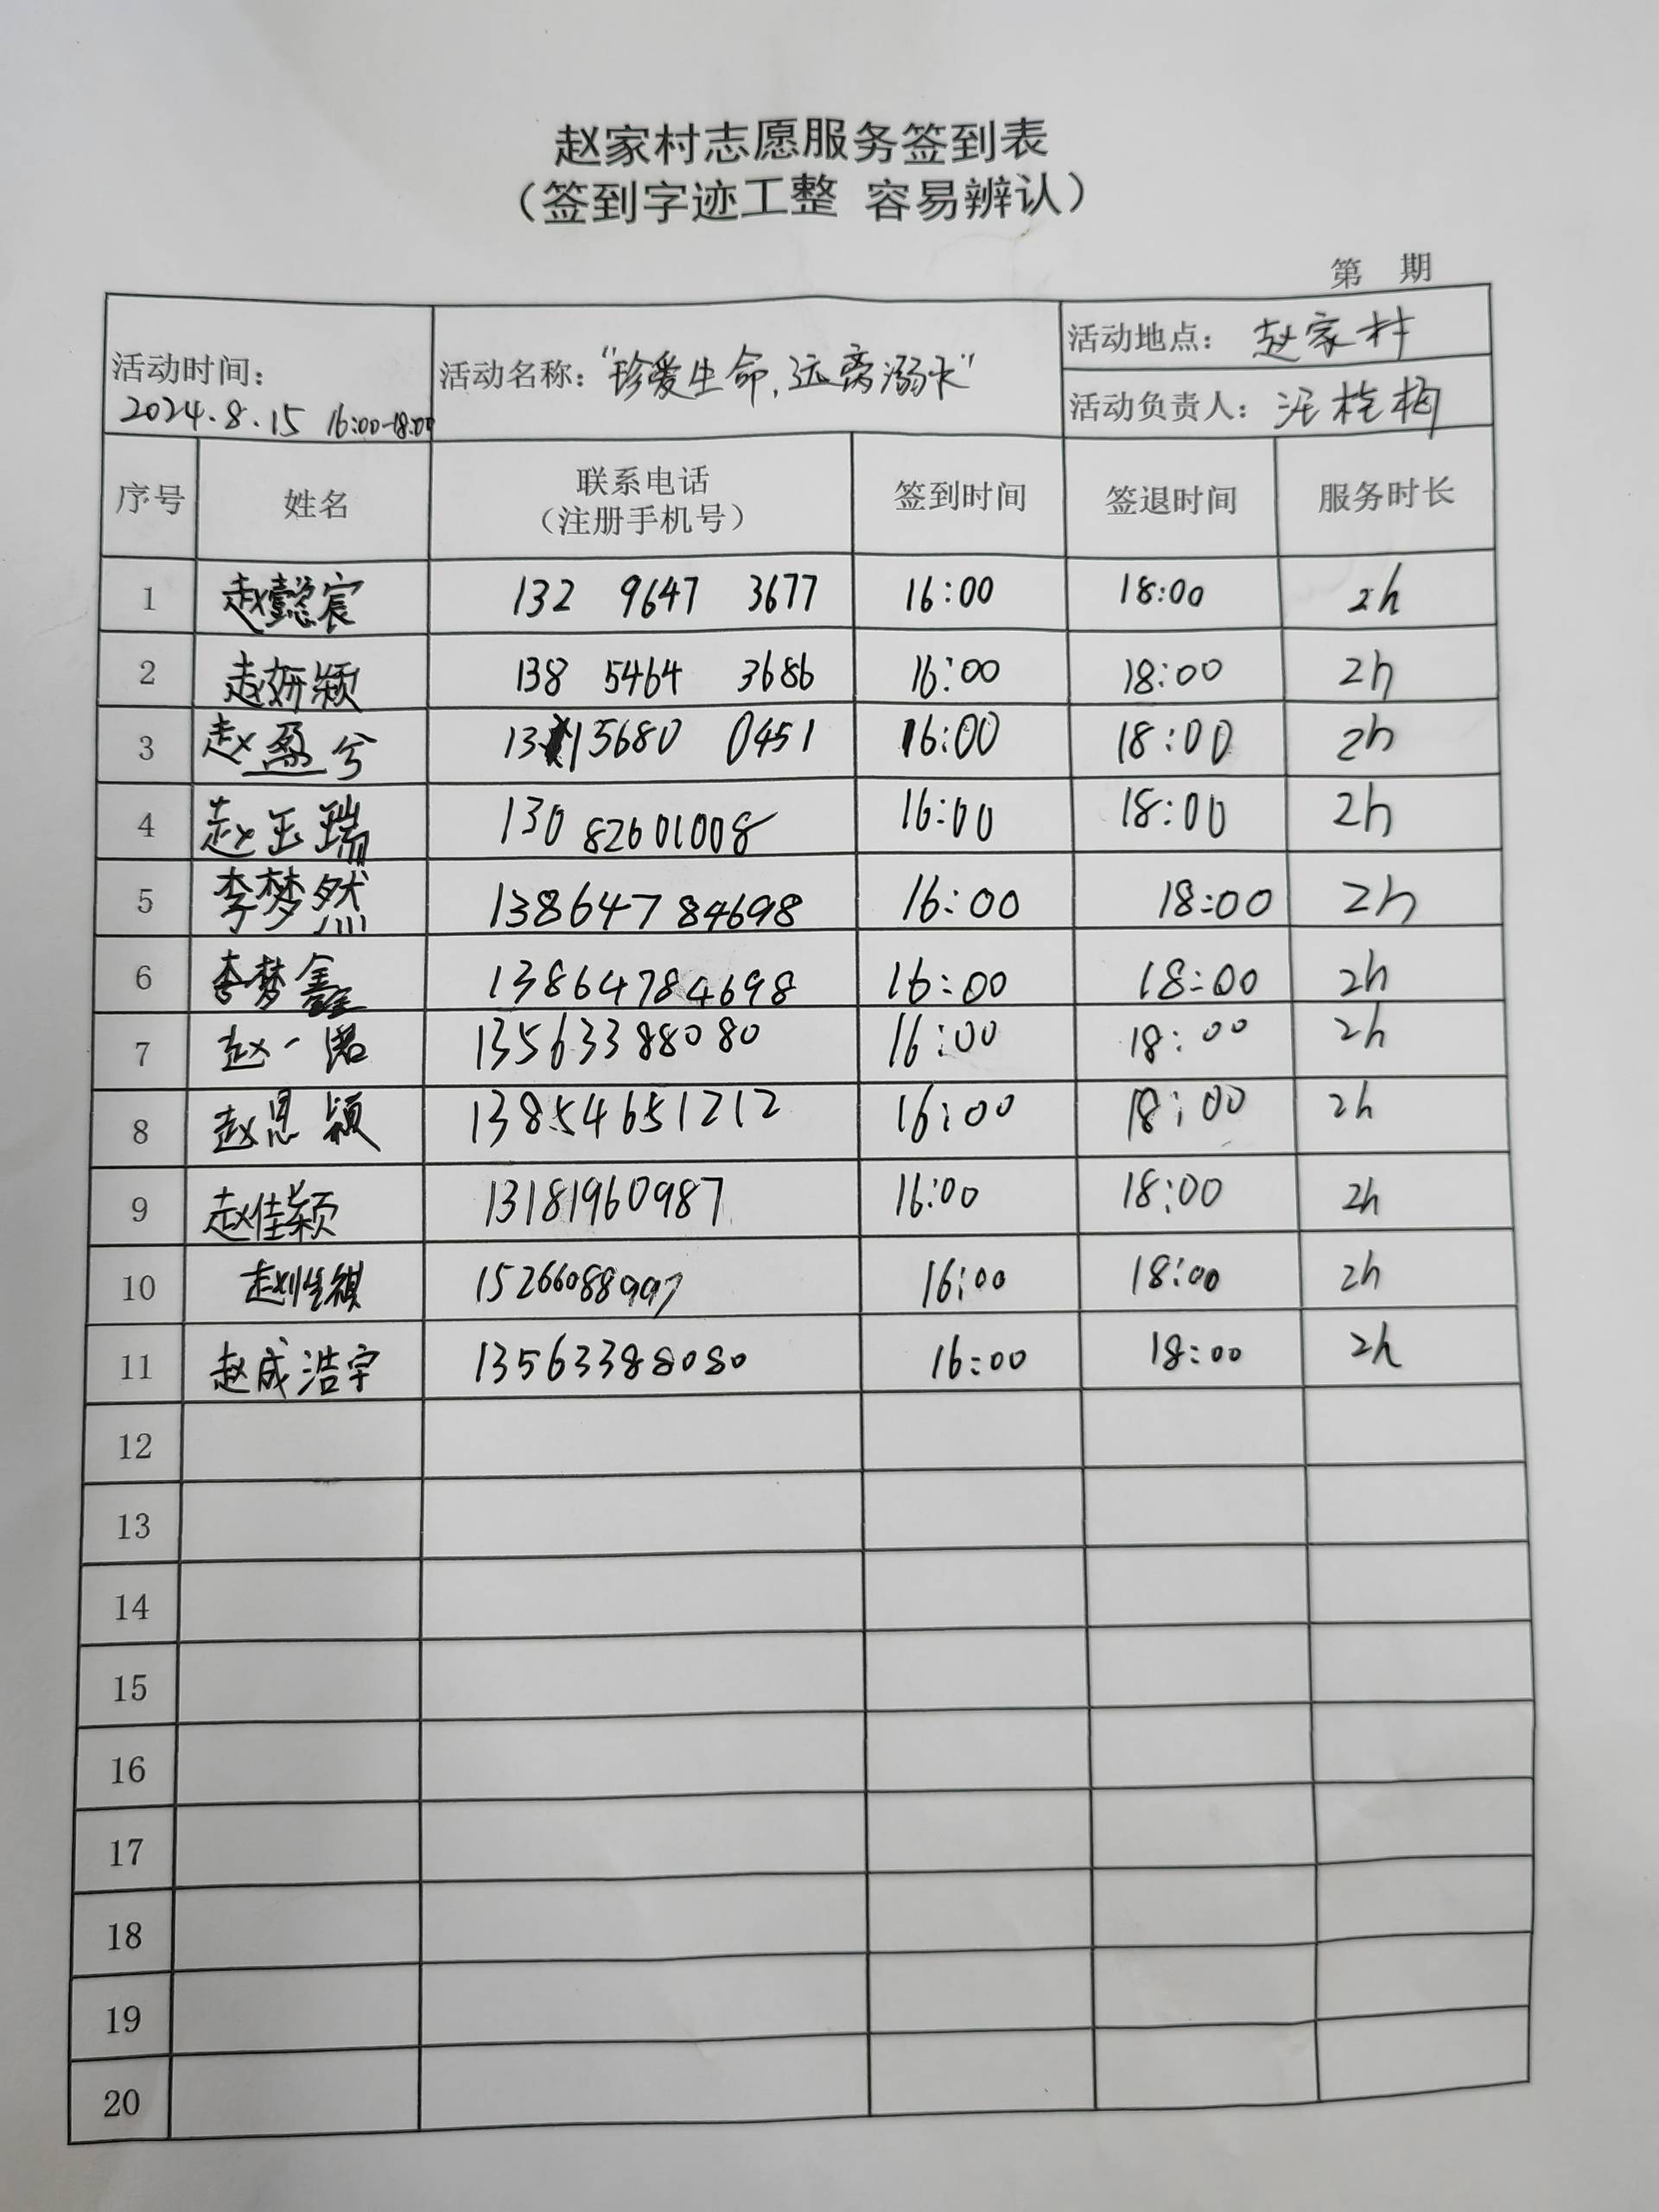 赵家村志愿服务签到表
（签到字迹工整 容易辨认）
第 期
活动时间：
2024.8.15 16:00-18:00
活动名称：“珍爱生命，远离溺水”
活动地点：赵家村
活动负责人：汪桂梅
序号 姓名 联系电话（注册手机号） 签到时间 签退时间 服务时长
1 赵懿宸 132 9647 3677 16:00 18:00 2h
2 赵妍颖 138 5464 3686 16:00 18:00 2h
3 赵盈兮 131 5680 0451 16:00 18:00 2h
4 赵玉瑞 130 82601008 16:00 18:00 2h
5 李梦然 13864784698 16:00 18:00 2h
6 李梦鑫 13864784698 16:00 18:00 2h
7 赵一诺 13563388080 16:00 18:00 2h
8 赵恩颖 13854651212 16:00 18:00 2h
9 赵佳颖 13181960987 16:00 18:00 2h
10 15266088997 16:00 18:00 2h
11 赵成浩宇 13563388080 16:00 18:00 2h
12
13
14
15
16
17
18
19
20